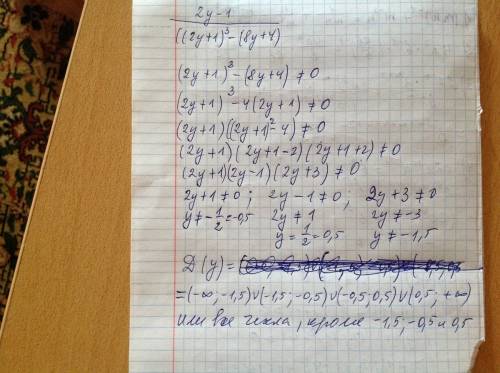 2y-1
((2y+1)³-(8y+4)
(2y+1)³-(8y+4) ≠ 0
(2y+1)³-4(2y+1) ≠ 0
(2y+1)((2y+1)²-4) ≠ 0
(2y+1)(2y+1-2)(2y+1+2) ≠ 0
(2y+1)(2y-1)(2y+3) ≠ 0
2y+1 ≠ 0; 2y-1 ≠ 0, 2y+3 ≠ 0
y ≠ -1/2 = -0,5 2y ≠ 1 2y ≠ -3
y = 1/2 = 0,5 y ≠ -1,5
D(y) =
=(-∞; -1,5)∪(-1,5; -0,5)∪(-0,5; 0,5)∪(0,5; +∞)
или все числа, кроме -1,5; -0,5 и 0,5